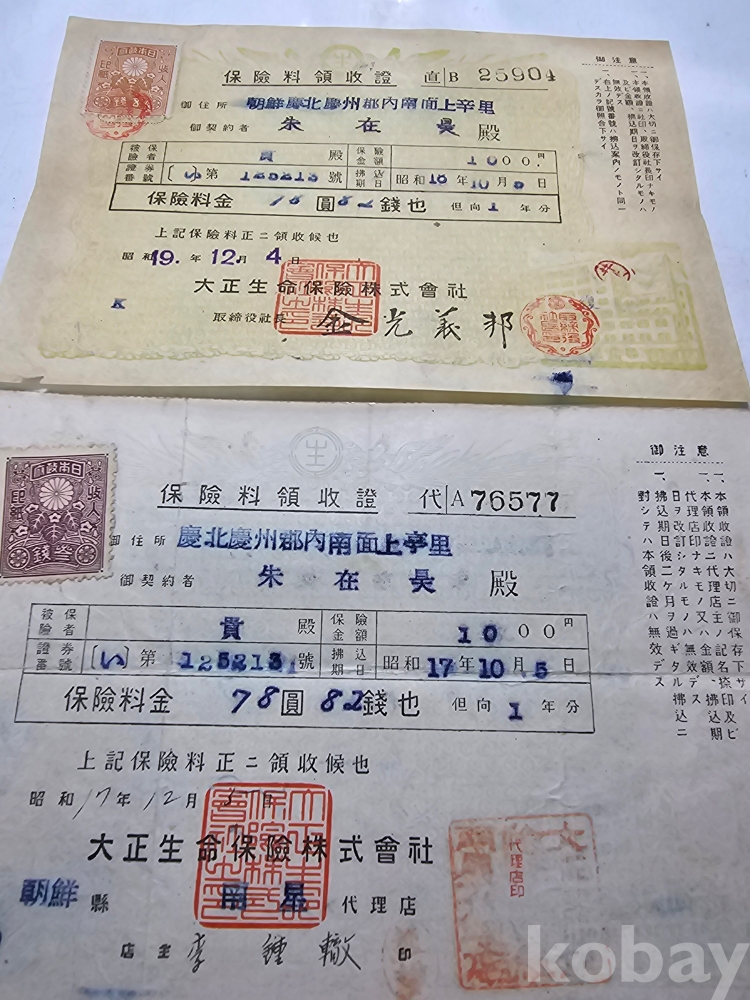 保險料領收證 直 B 25904
御住所 朝鮮慶北慶州郡內南面上辛里
御契約者 朱在昊 殿
被保險者 貴 殿 保險金額 1000.円
證券番號 〔い〕第 125213 號 拂込期日 昭和18年10月5日
保險料金 78圓82錢也 但向1年分
上記保險料正ニ領收候也
昭和19.年12.月4日
大正生命保險株式會社
取締役社長 金光義邦
K
御注意
一、本領收證ハ大切ニ御保存下サイ
收入
印紙
保險料領收證 代 A 76577
御住所 慶北慶州郡內南面上辛里
御契約者 朱在昊 殿
被保險者 貴 殿 保險金額 1000円
證券番號 〔い〕第 125213 號 拂込期日 昭和17年10月5日
保險料金 78圓82錢也 但向1年分
上記保險料正ニ領收候也
昭和17年12月 日
大正生命保險株式會社
朝鮮 縣 代理店
代理店印
店主 李鍾轍 印
御注意
一、本領收證ハ大切ニ御保存下サイ
一、拂込期日後二ケ月ヲ過ギタル拂込ニ
對シテハ本領收證ハ無效デス
收入
印紙
kobay